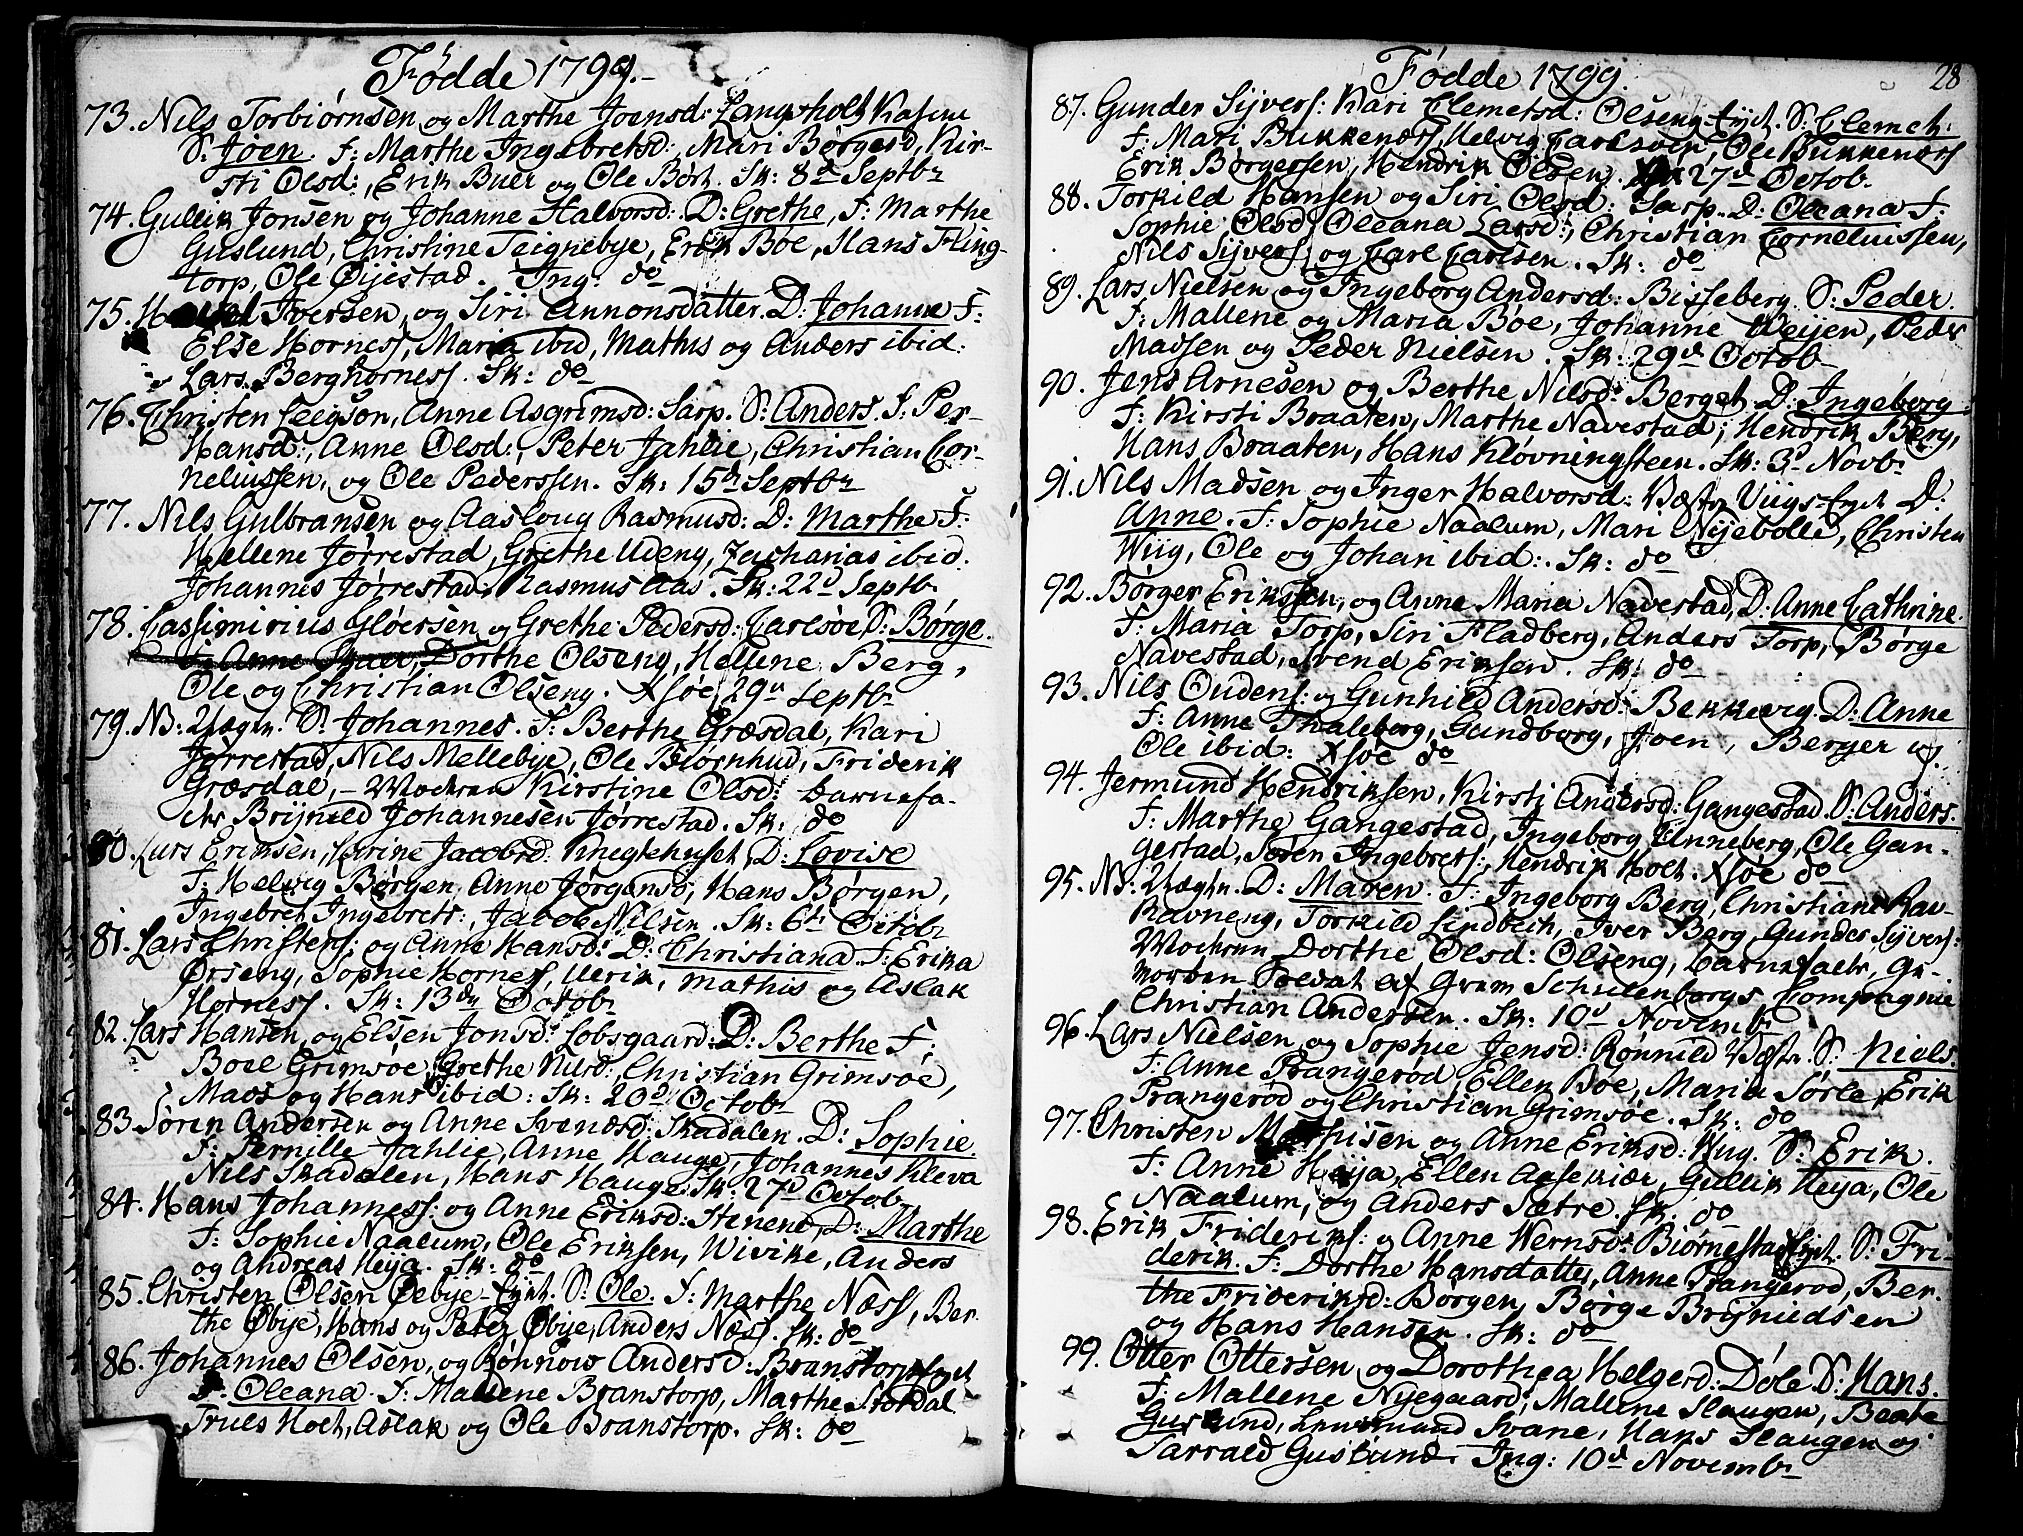 Fødde 1799.
73. Nils Torbiørnsen og Marthe Joensd: Langsholt
S: Joen. F: Marthe Ingebretsd:, Mari Børgersd, Kir-
sti Olsd:, Erik Buer og Ole Børt. Sk: 8d Septbr
74. Gullik Jonsen og Johanne Halvorsd: D: Grethe, F: Marthe
Guslund, Christine Teignebye, Erik Bøe, Hans Kling-
torp, Ole Øijestad. Ing: do
75. Iversen, og Siri Annonsdatter. D: Johanne F:
Else Horness, Maria ibid, Mathis og Anders ibid:
Lars Berghorness. Sk: do
76. Christen Leegson, Anne Asgrimsd: Sarp. S: Anders. F: Per-
Hansd:, Anne Olsd:, Peter Jahlie, Christian Cor-
neliussen, og Ole Pederssen. Sk: 15d Septbr
77. Nils Gulbransen og Aasloug Rasmusd: D: Marthe F:
Hellene Jørrestad, Grethe Udeng, Zacharias ibid.
Johannes Jørrestad, Rasmus Aas. Sk: 22d Septbr
78. Cassimirius Gløersen og Grethe Pedersd: Carlsøe, S: Børge.
og Anne Skuer, Dorthe Olseng, Hellene Berg,
Ole og Christian Olseng. Xsøe 29d Septbr
79. NB: Uægte. S: Johannes. F: Berthe Græsdal, Kari
Jørrestad, Nils Mellebye, Ole Biørnhud, Friderik
Græsdal, - Moderen Kirstine Olsd: Barnefa-
der Brijnild Johannesen Jørrestad. Sk: do
80. Lars Eriksen, Karine Jacobsd: Knegtehuset, D: Lovise
F: Helvig Børgen, Anne Jørgensd, Hans Børgen,
Ingebret Ingebrets:, Jacob Nilsen. Sk: 6te Octobr
81. Lars Christens: og Anne Hansd: D: Christiana. F: Erika
Ørseng, Sophie Horness, Ulerik, Mathis og Aslak
Horness. Sk: 13de Octobr
82. Lars Hansen, og Elsen Jonsd: Lobsgaard: D: Berthe F:
Boel Grimsøe, Grethe Nilsd:, Christian Grimsøe,
Mads og Hans ibid: Sk: 20d Octobr
83. Søren Andersen og Anne Svendsd: Skadalen. D: Sophie.
F: Pernille Jahlie, Anne Hauge, Johannes Kleva
Nils Skadalen, Hans Hauge. Sk: 27d Octob
84. Hans Johanness: og Anne Eriksd: Stenene, D: Marthe
F: Sophie Naalum, Ole Eriksen, Wivike, Anders
og Andreas Heija. Sk: do
85. Christen Olsen Oebye-Eyet. S: Ole. F: Marthe Næss, Ber-
the Øbye, Hans og Peter Øbye, Anders Næss. Sk: do
86. Johannes Olsen, og Rønnow Andersd: Branstorps Eyet
D: Oleana. F: Mallene Branstorp, Marthe Stordal
Truls Holt, Aslak og Ole Branstorp. Sk: do
Fødde 1799.
28
87. Gunder Sijvers: Kari Clemetsd: Olseng-Eyet. S: Clemet.
F: Mari Bukkenæss, Helvig Carlsøen, Ole Bukkenæss
Erik Børgersen, Hendrik Olsen. 27d Octob.
88. Torkild Hansen og Siri Olsd: Sarp. D: Oleana F:
Sophie Olsd: Oleana Larsd:, Christian Corneliussen,
Nils Sijvers: og Carl Carlsen. Sk: do
89. Lars Nielsen og Ingeborg Andersd: Bisseberg. S: Peder
F: Mallene og Maria Bøe, Johanne Weijen, Peder
Madsen og Peder Nielsen. Sk: 29d Octob
90. Jens Arnesen og Berthe Nilsd: Berget D: Ingeborg
F: Kirsti Braaten, Marthe Navestad, Hendrik Berg,
Hans Braaten, Hans Kløvningsteen. Sk: 3d Novbr
91. Nils Madsen og Inger Halvorsd: Wæstre Viigs-Eyet D:
Anne. F: Sophie Naalum, Mari Nyebolle, Christen
Wiig, Ole og Johan ibid: Sk: do
92. Børger Erikssen, og Anne Maria Navestad, D: Anne Cathrine.
F: Maria Torp, Siri Fladberg, Anders Torp, Børge
Navestad, Svend Eriksen. Sk: do
93. Nils Oudens: og Gunhild Andersd: Bekkevig. D: Anne
F: Anne Thaleberg, Gundborg, Joen, Berger og
Ole ibid: Xsøe do
94. Jermund Hendriksen, Kirsti Andersd: Gangestad. S: Anders.
F: Marthe Gangestad, Ingeborg Anneberg, Ole Gan-
gestad, Søren Ingebrets:, Hendrik Holt. Xsøe do
95. NB: Uægte. D: Maren. F: Ingeborg Berg, Christiane Rav-
Ravneng, Torkild Lindbech, Iver Berg, Gunder Sijvers:
Moderen Dorthe Olsd: Olseng, Barnefader, Ge-
vorben Soldat af Gram Schulenborgs Compagnie
Christian Andersen. Sk: 10d Novembr
96. Lars Nielsen og Sophie Jensd: Rønnild Wæstre. S: Niels.
F: Anne Prangerød, Ellen Bøe, Maria Sørle, Erik
Prangerød og Christian Grimsøe. Sk: do
97. Christen Mathisen og Anne Eriksd: Wiig. S: Erik.
F: Anne Heija, Ellen Aasekiær, Gullik Heija, Ole
Naalum, og Anders Sætre. Sk: do
98. Erik Frideriks: og Anne Wernsd: Biørnestad Eyet. S: Fri-
derik. F: Dorthe Hansdatter, Anne Prangerød, Ber-
the Frideriksd: Børgen, Børge Brijnildsen
og Hans Hansen. Sk: do
99. Otter Ottersen og Dorothea Helgerd: Døle. S: Hans.
F: Mallene Nijegaard, Mallene Haugen, Beate
Guslund, Svane, Hans Haugen og
Tarrald Guslund. Ing: 10d Novembr